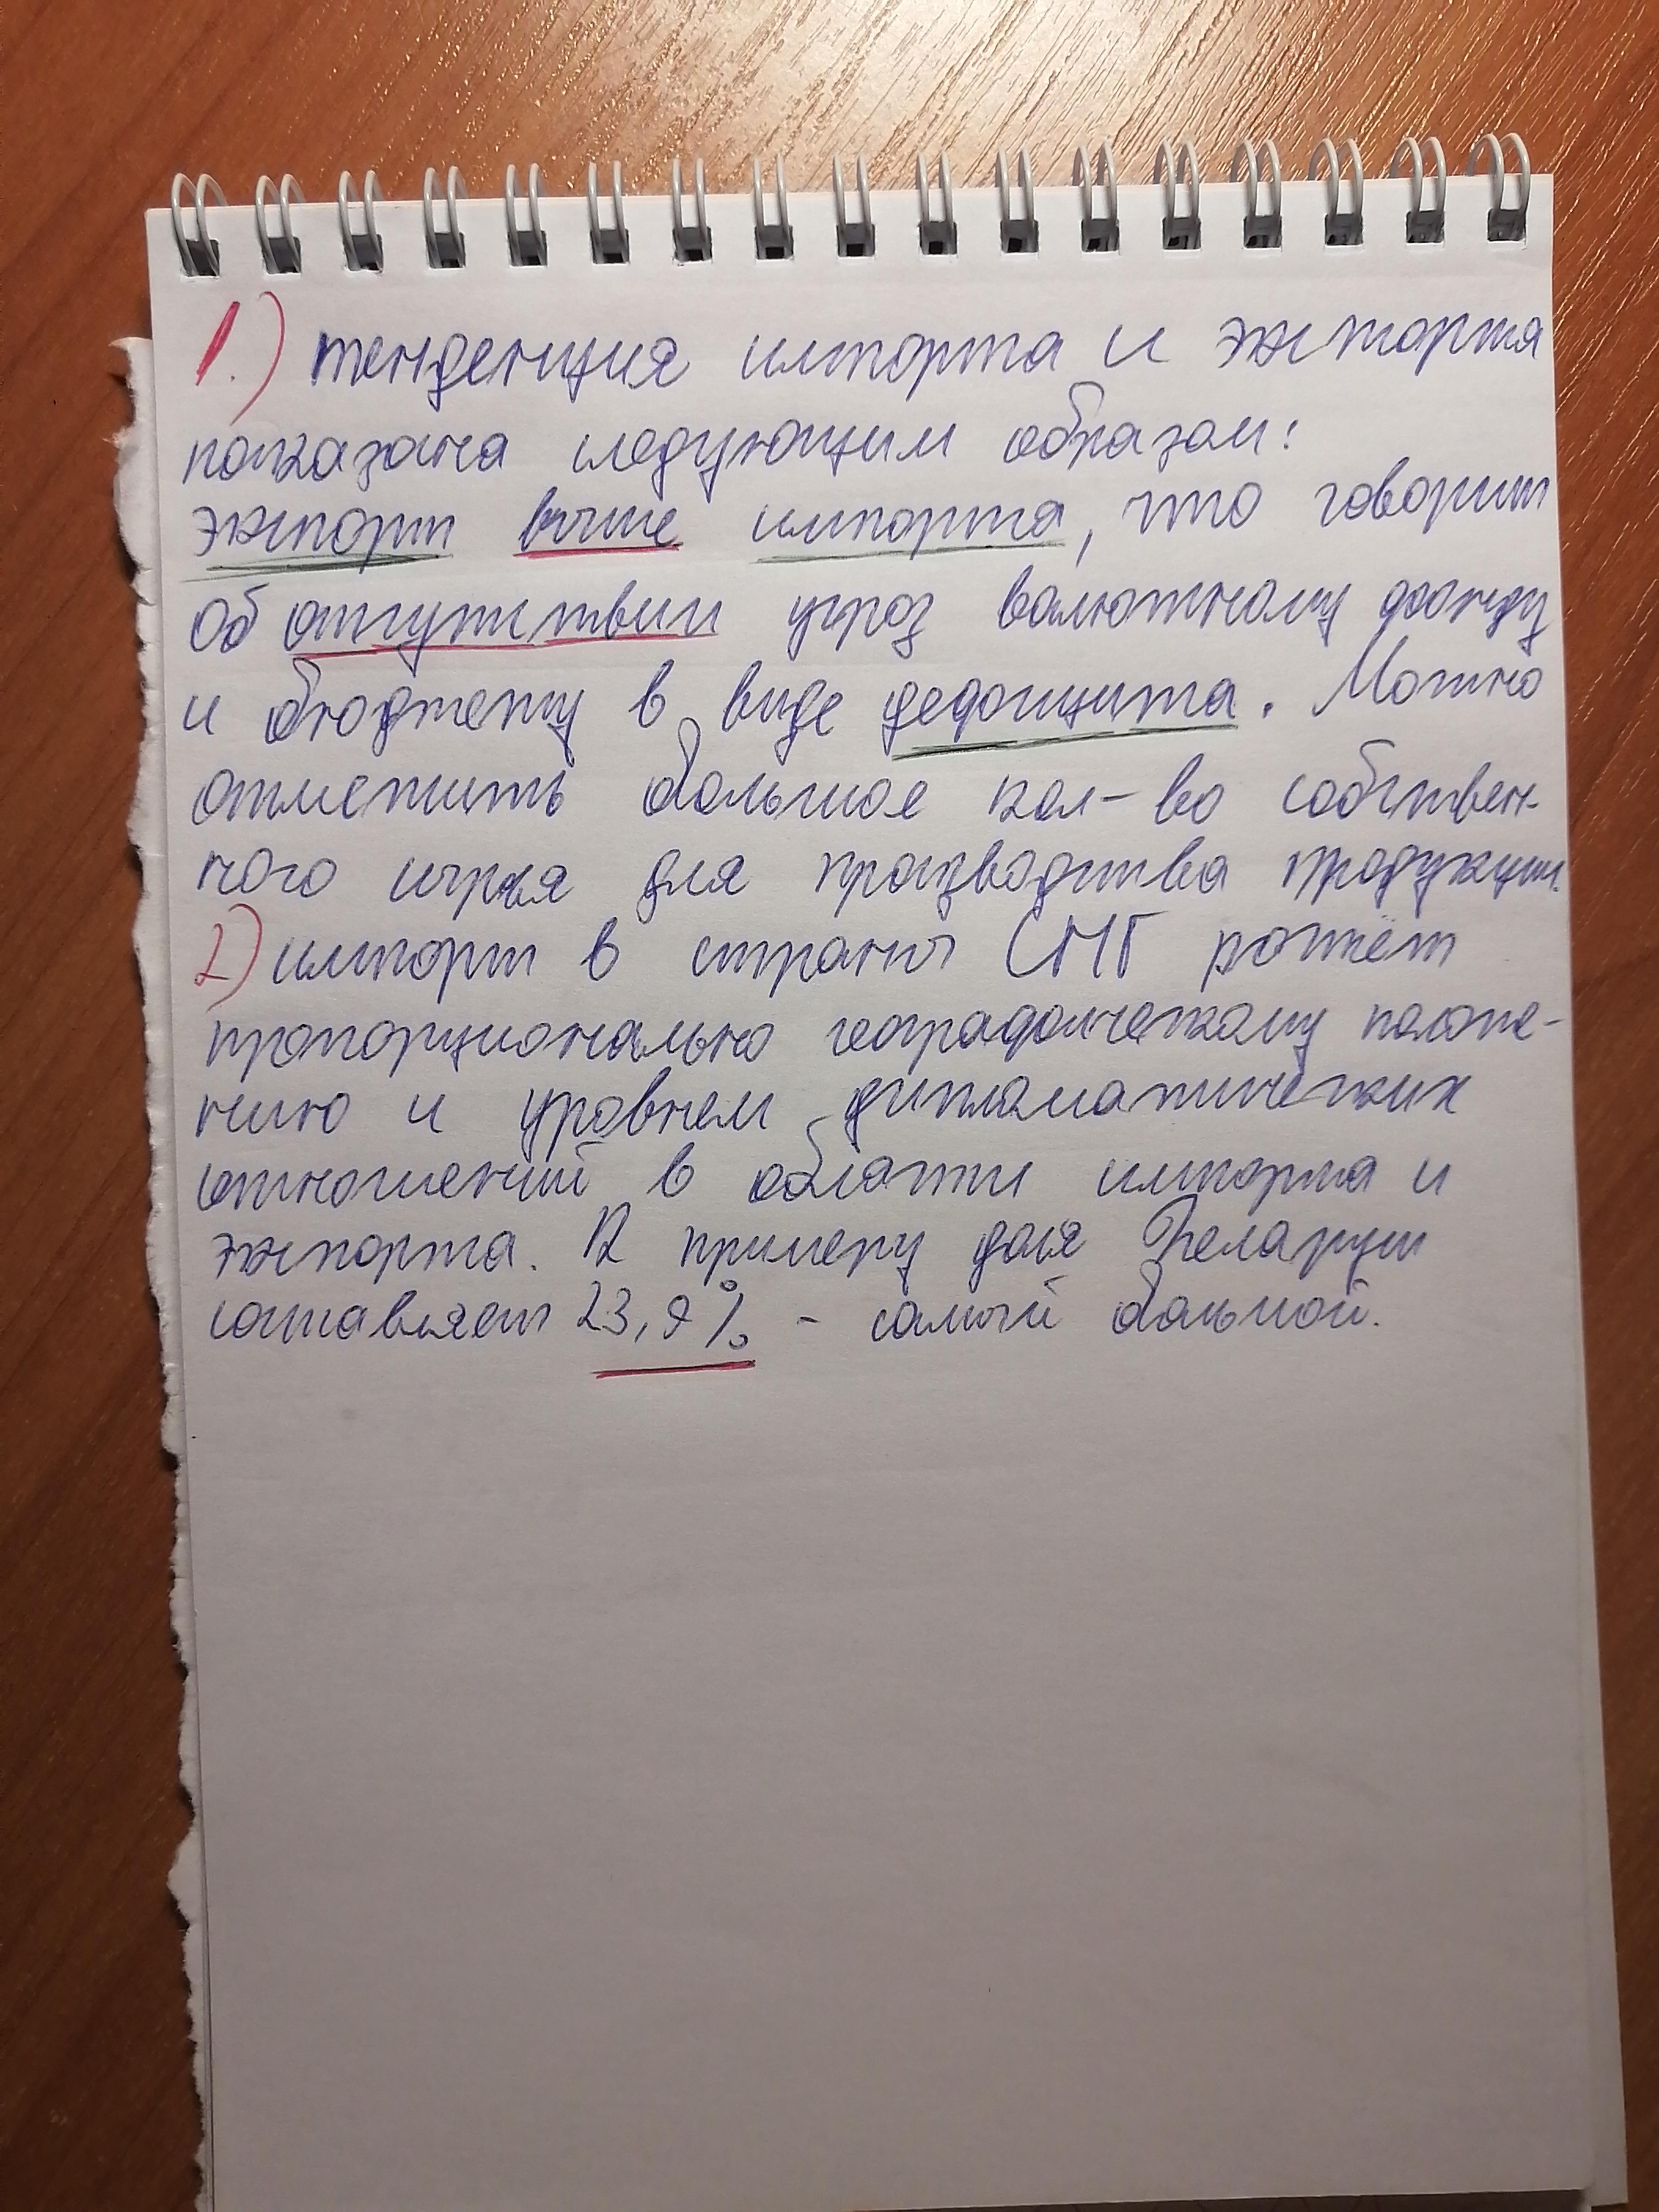 1.) тенденция импорта и экспорта
показана следующим образом:
экспорт выше импорта, что говорит
об отсутствии угроз валютному фонду
и бюджету в виде дефицита. Можно
отметить большое кол-во собствен-
ного сырья для производства продукции.
2) импорт в страны СНГ растёт
пропорционально географическому положе-
нию и уровнем дипломатических
отношений в области импорта и
экспорта. К примеру доля Беларуси
составляет 23,9% - самый большой.